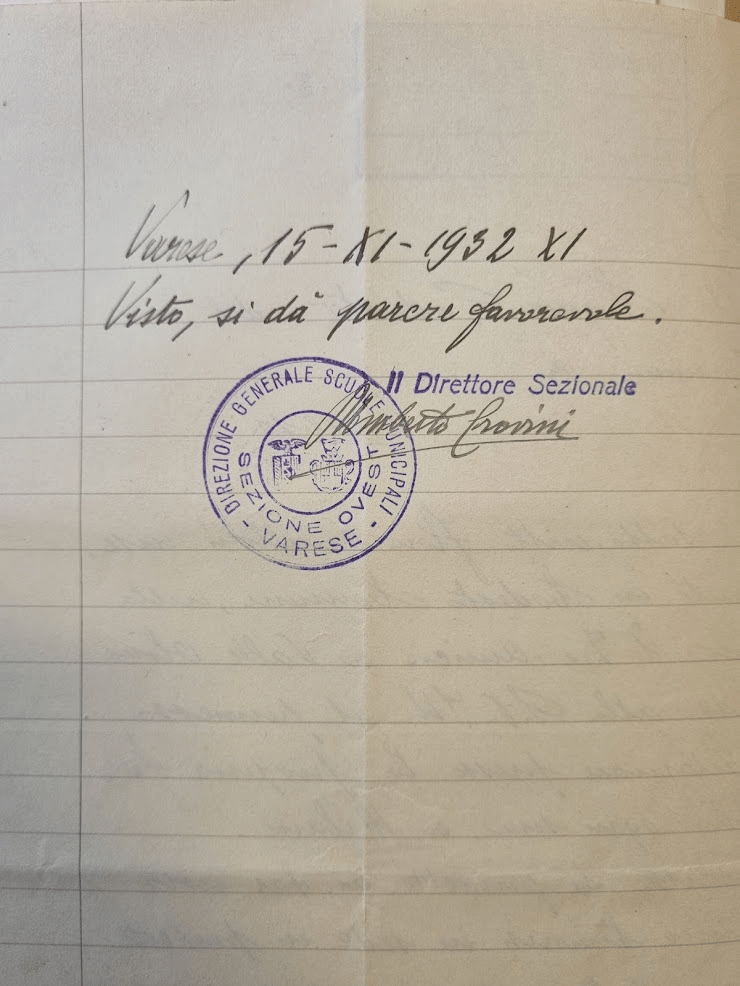 Varese, 15-XI-1932 XI
Visto, si dà parere favorevole.
Il Direttore Sezionale
Umberto Crovini
DIREZIONE GENERALE SCUOLE MUNICIPALI
SEZIONE OVEST
- VARESE -